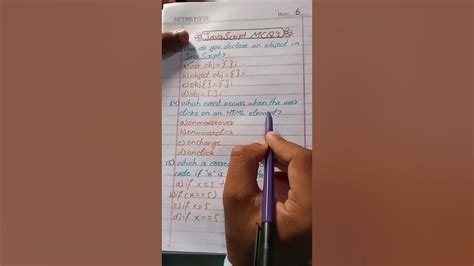 Date: 6
JavaScript MCQ's
do you declare an object in
JavaScript?
a) var obj = {};
b) object obj = {};
c) obj{} = {};
d) obj = {};
14) Which event occurs when the user
clicks on an HTML element?
a) onmouseover
b) onmouseclick
c) onchange
d) onclick
15) which is
code if "x" is
a) if x = 5
b) if (x == 5)
c) if x = 5
d) if x == 5